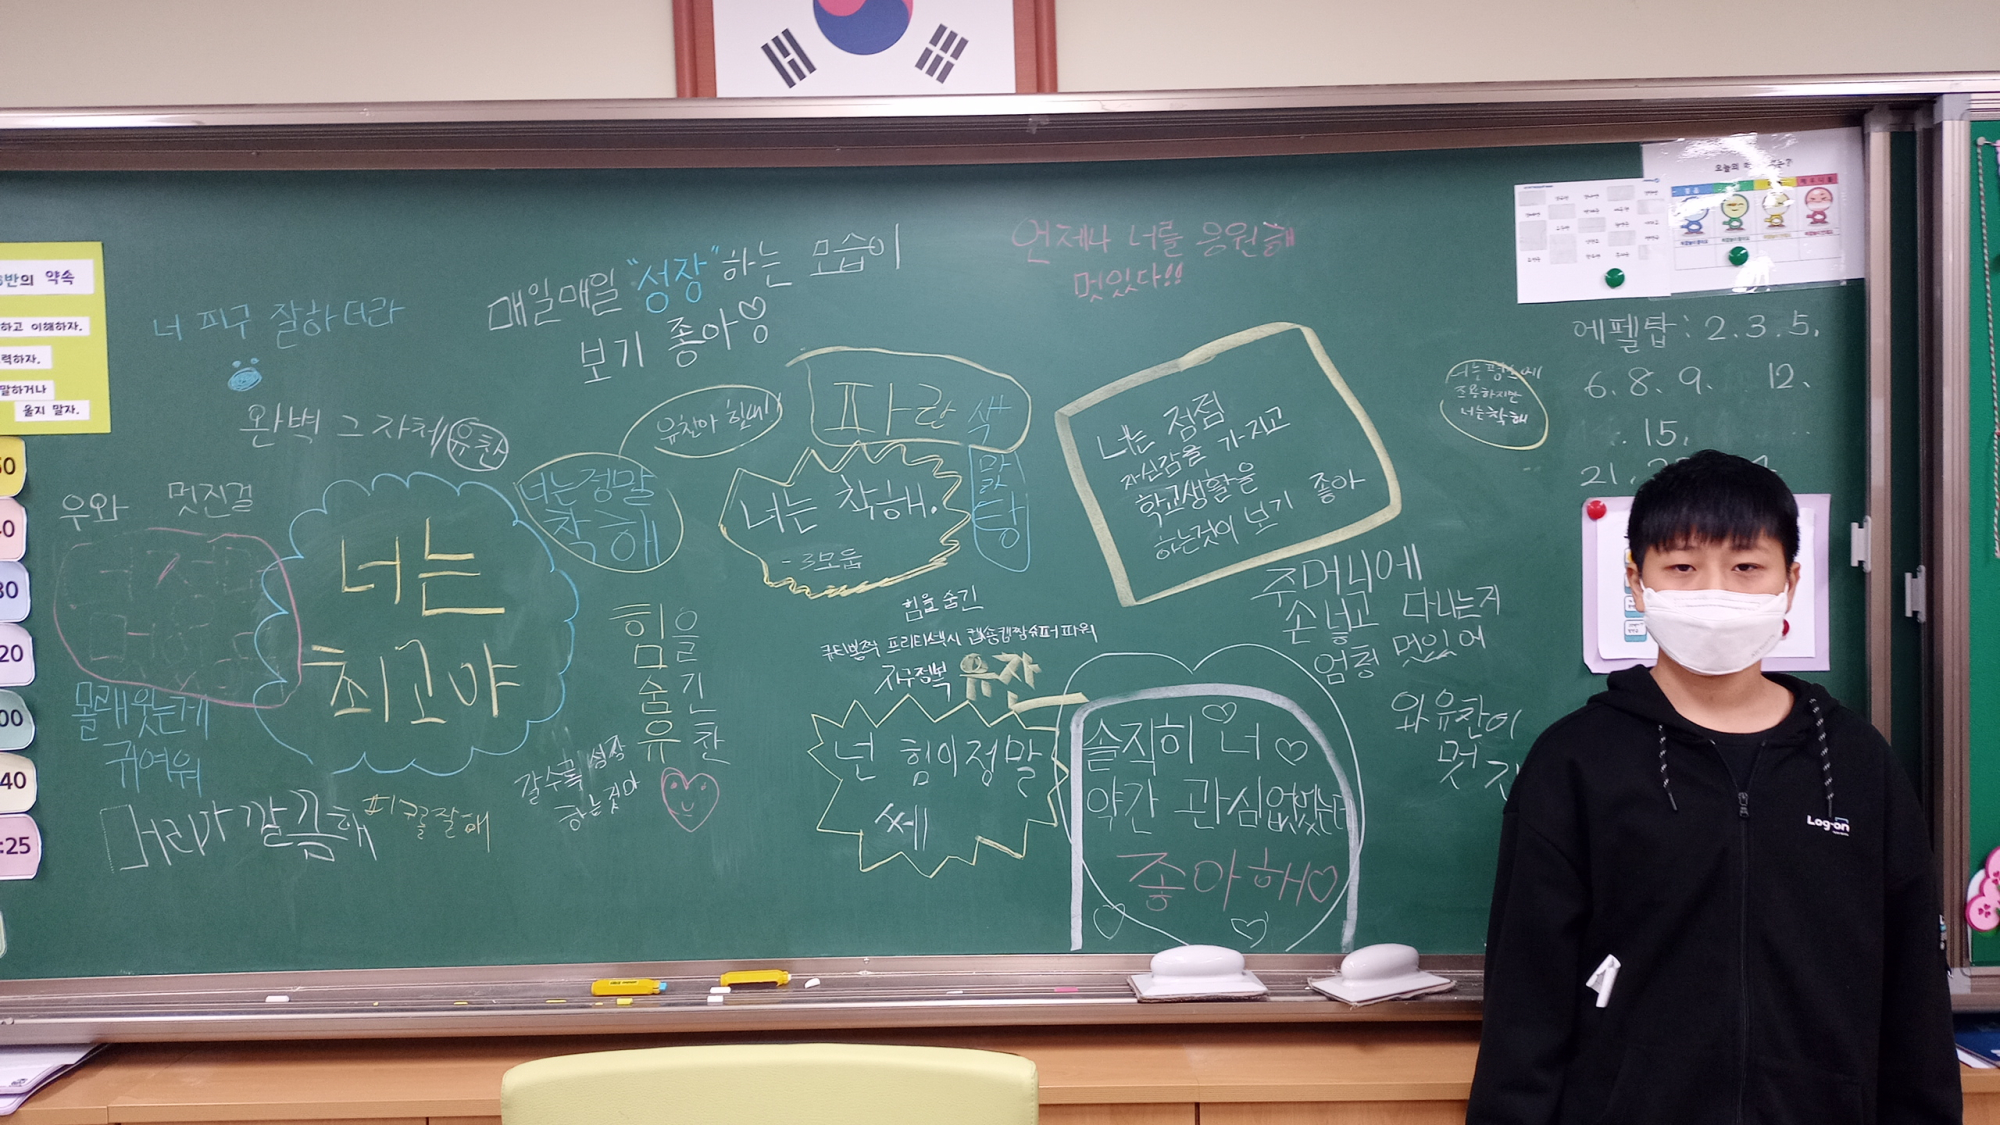 반의 약속
하고 이해하자.
력하자.
말하거나
울지 말자.
너 피구 잘하더라
매일매일 "성장"하는 모습이
보기 좋아
언제나 너를 응원해
멋있다!!
에펠탑: 2. 3. 5.
6. 8. 9. 12.
15.
21.
완벽 그 자체 유찬
유찬아 힘내
파란색
맑탕
너는 정말
착해
너는 착해.
-3모둠
너는 점점
자신감을 가지고
학교생활을
하는것이 보기 좋아
조용하지만
너는착해
우와 멋진걸
너는
최고야
몰래웃는게
귀여워
머리가 깔끔해
피구를잘해
힘을
숨긴
유찬
갈수록 성장
하는것아
힘을 숨긴
지구정복
넌 힘이정말
쎄
솔직히 너
약간 관심없었는데
좋아해
주머니에
손 넣고 다니는거
엄청 멋있어
와 유찬이
멋
Log-on
50
40
30
20
00
40
:25